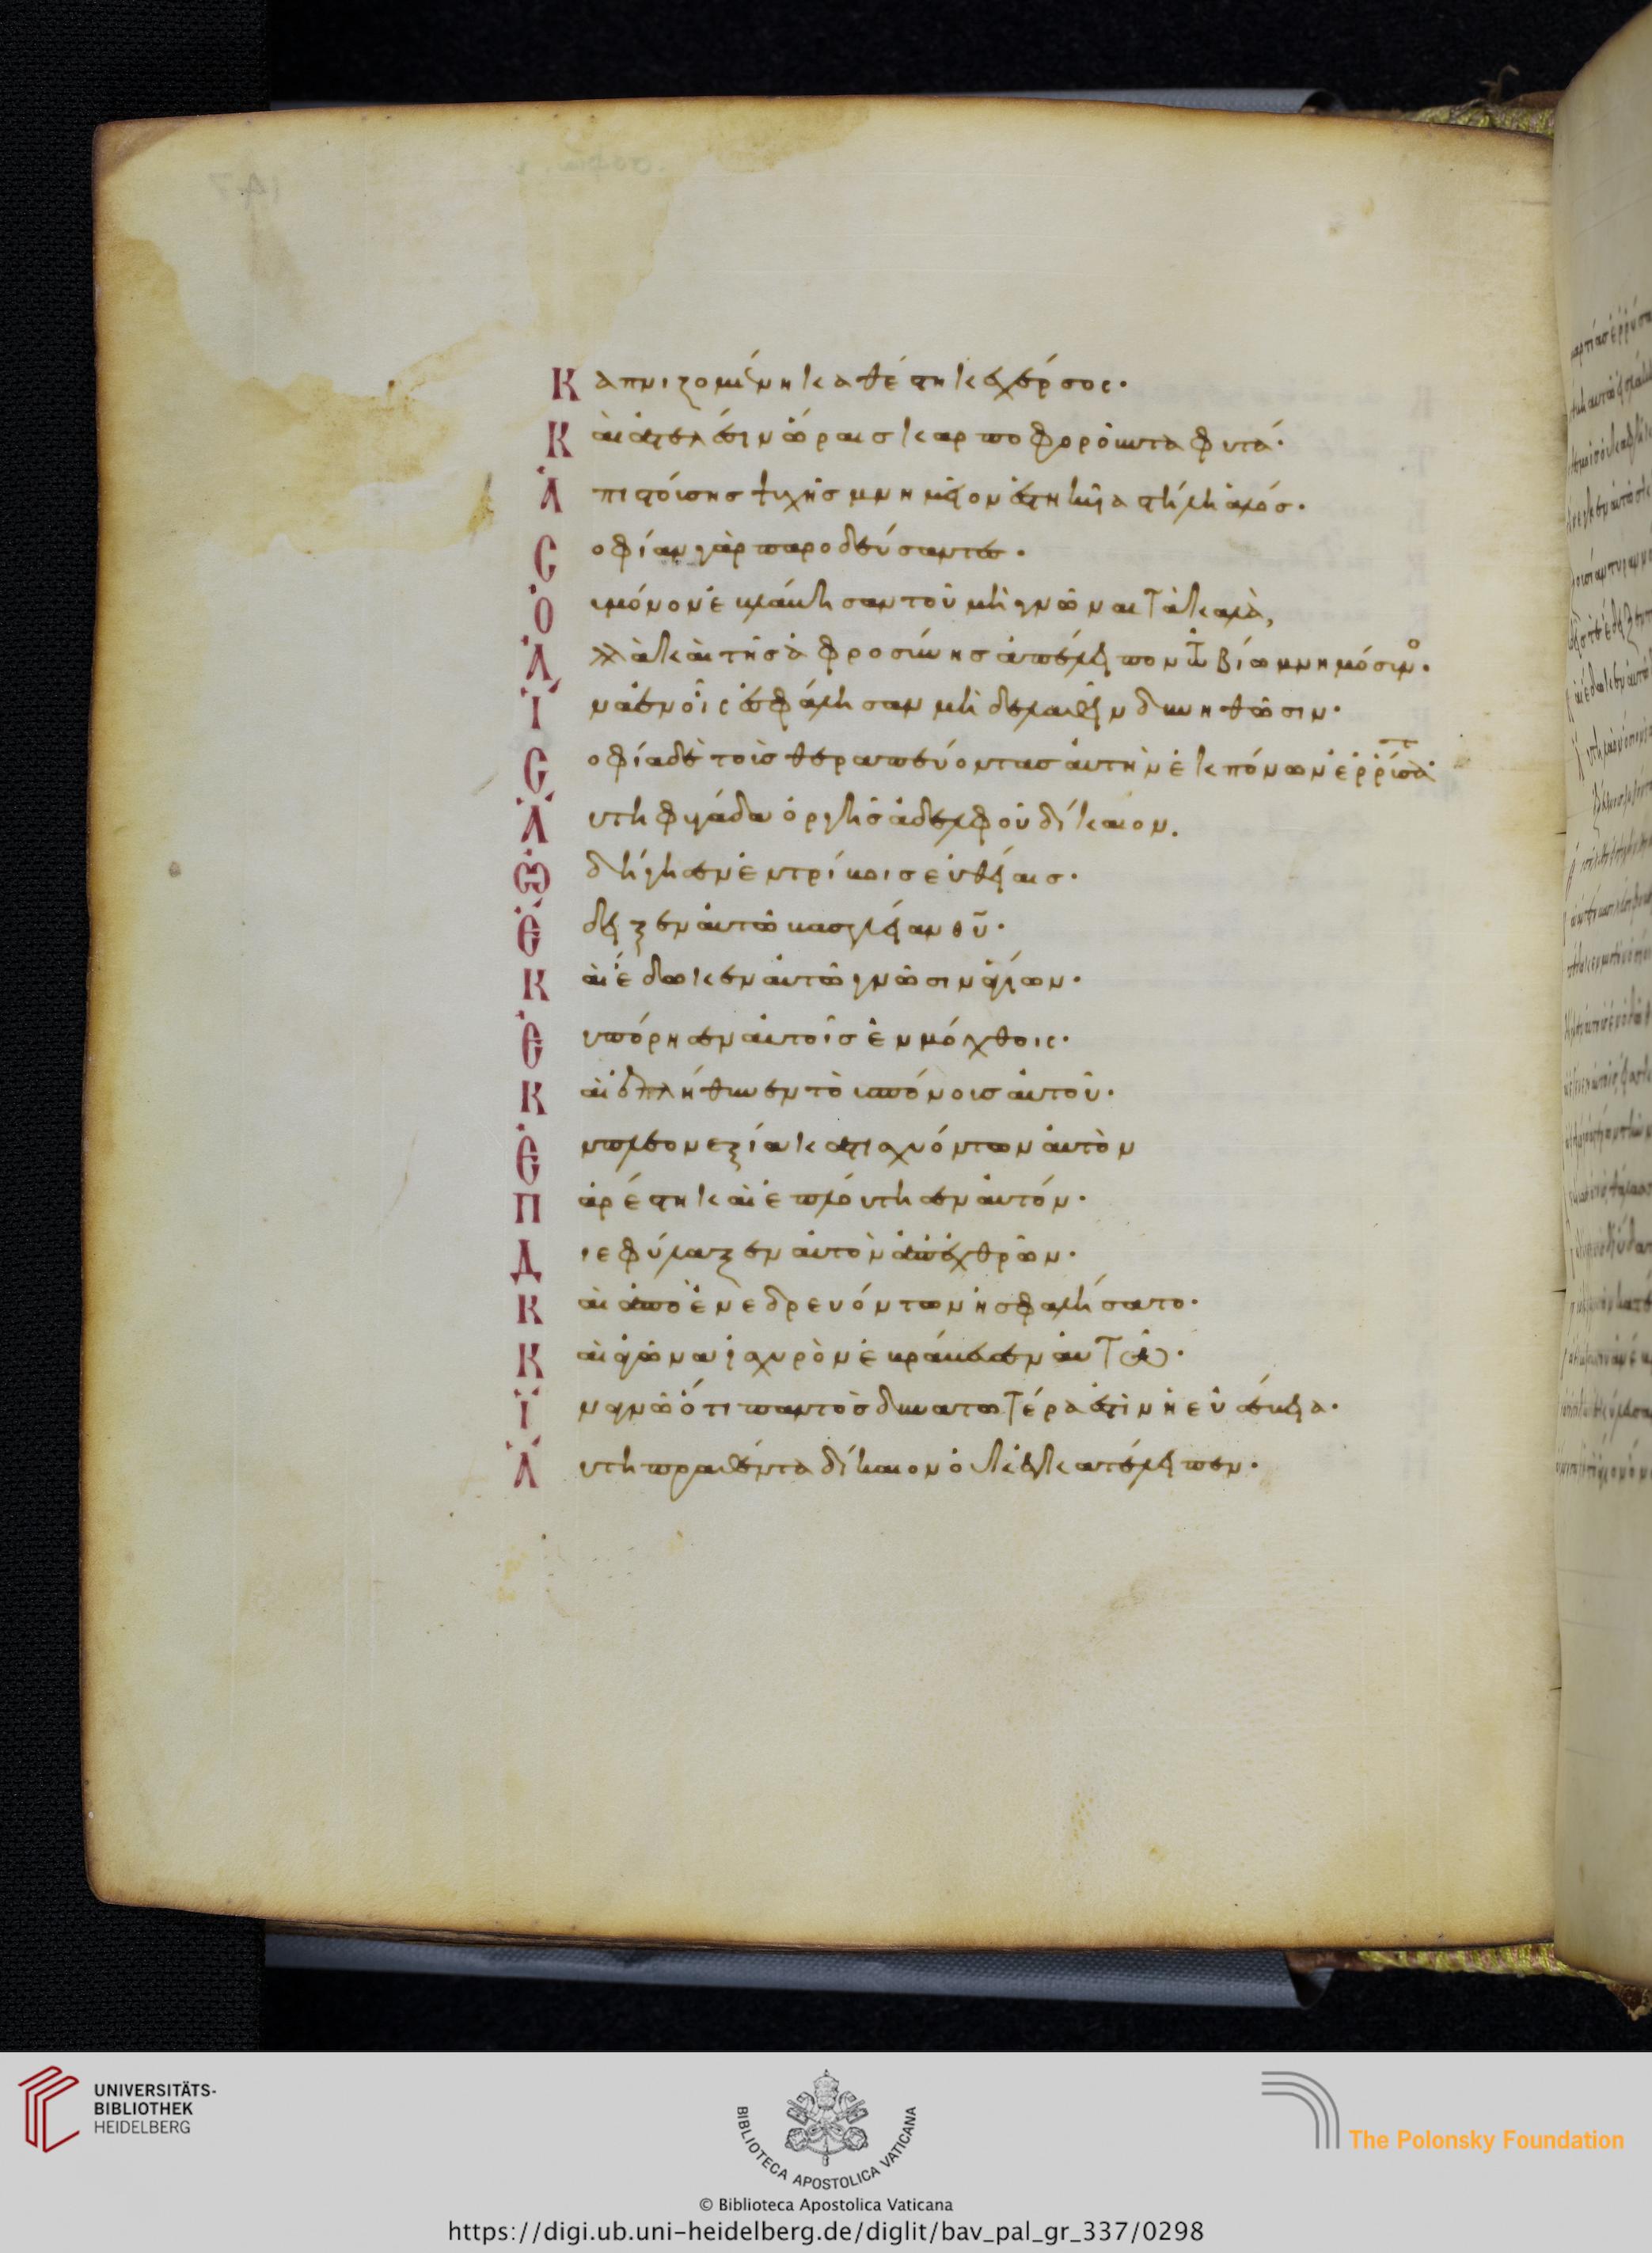 Καπνιζομένη καθέστηκε χέρσος·
Καὶ ἀτελέσιν ὥραις καρποφοροῦντα φυτά·
Ἀπιστούσης ψυχῆς μνημεῖον ἑστηκυῖα στήλη ἁλός·
Σοφίαν γὰρ παροδεύσαντες·
Οὐ μόνον ἐβλάβησαν τοῦ μὴ γνῶναι τὰ καλὰ,
Ἀλλὰ καὶ τῆς ἀφροσύνης ἀπέλειπον τῷ βίῳ μνημόσυνον·
Ἵνα ἐν οἷς ἐσφάλησαν μὴ δὲ λαθεῖν δυνηθῶσιν·
Σοφία δὲ τοὺς θεραπεύοντας αὐτὴν ἐκ πόνων ἐρρύσατο·
Αὕτη φυγάδα ὀργῆς ἀδελφοῦ δίκαιον.
Ὡδήγησεν ἐν τρίβοις εὐθείαις·
Ἔδειξεν αὐτῷ βασιλείαν θῦ·
Καὶ ἔδωκεν αὐτῷ γνῶσιν ἁγίων·
Εὐπόρησεν αὐτοῖς ἐν μόχθοις·
Καὶ ἐπλήθυνεν τοὺς πόνους αὐτοῦ·
Ἐν πλεονεξία κατισχυόντων αὐτὸν
Παρέστη καὶ ἐπλούτησεν αὐτόν·
Διεφύλαξεν αὐτὸν ἀπὸ ἐχθρῶν·
Καὶ ἀπὸ ἐνεδρευόντων ἠσφαλίσατο·
Καὶ ἀγῶνα ἰσχυρὸν ἐβράβευσεν αὐτῷ·
Ἵνα γνῷ ὅτι παντὸς δυνατωτέρα ἐστὶν ἡ εὐσέβεια·
Αὕτη πραθέντα δίκαιον οὐκ ἐγκατέλειπεν·
UNIVERSITÄTS-
BIBLIOTHEK
HEIDELBERG
BIBLIOTECA APOSTOLICA VATICANA
© Biblioteca Apostolica Vaticana
The Polonsky Foundation
https://digi.ub.uni-heidelberg.de/diglit/bav_pal_gr_337/0298